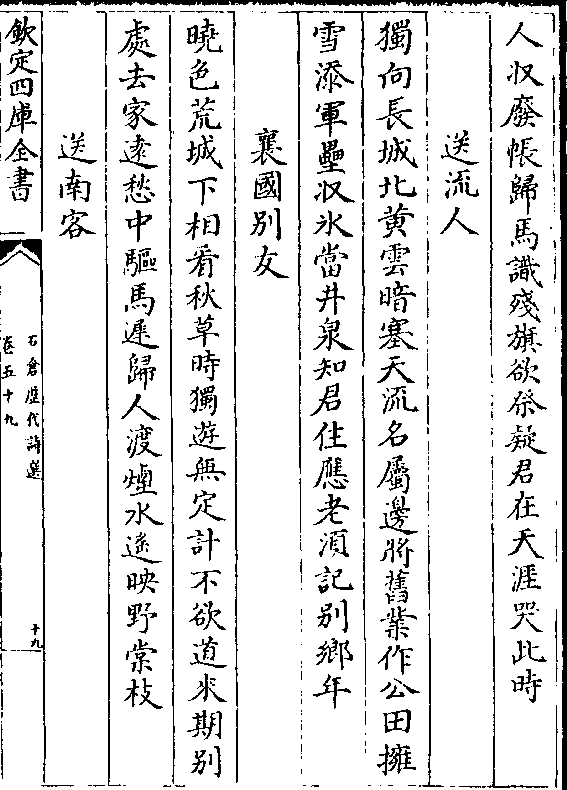 人収廢帳歸馬識殘旗欲祭疑君在天涯哭此時
送流人
獨向長城北黄雲暗塞天流名屬邊將舊業作公田擁
雪添軍壘収氷當井泉知君住應老須記别鄉年
襄國别友
曉色荒城下相看秋草時獨遊無定計不欲道來期别
處去家逺愁中驅馬遲歸人渡煙水遥映野棠枝
送南客
欽定四庫全書
石倉歴代詩選
卷五十九
十九